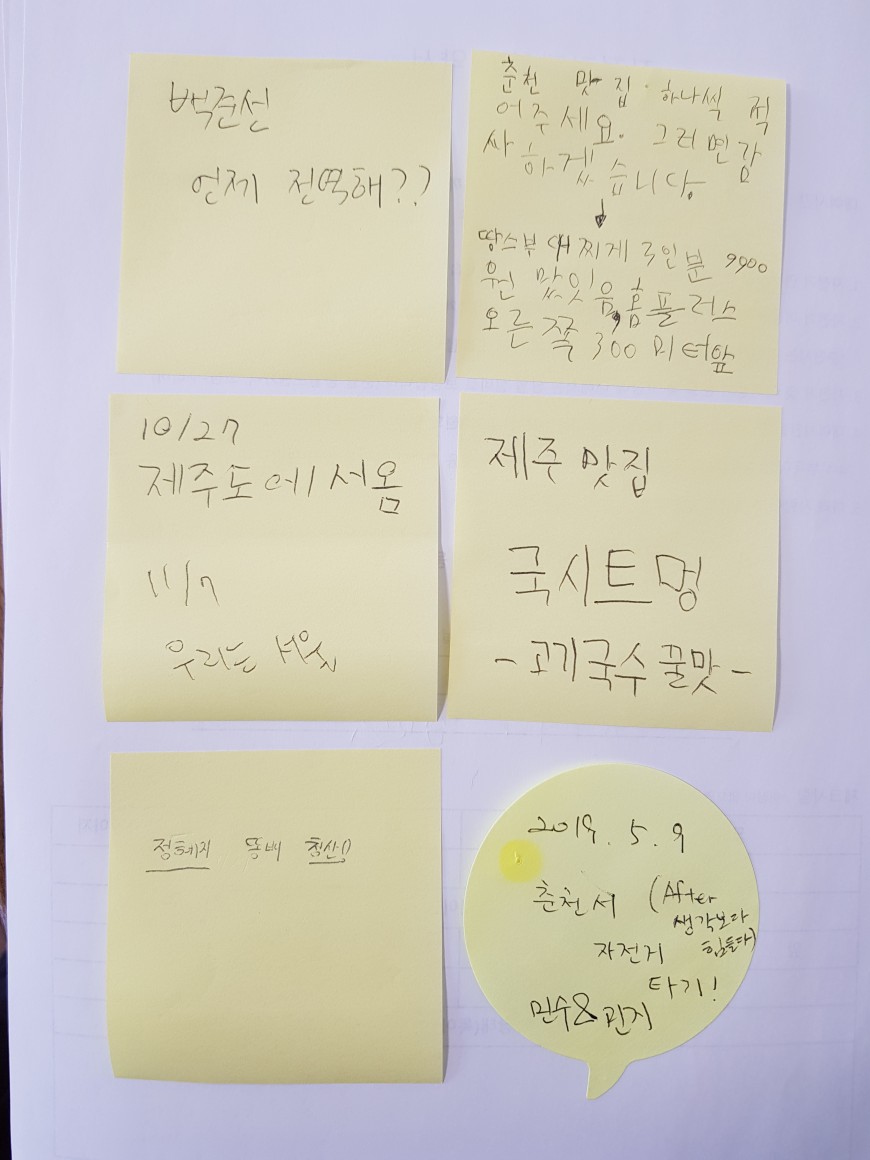 백준선
언제 전역해??
춘천 맛집. 하나씩 적
어주세요. 그러면 감
사하겠습니다.
땅스부대찌게 3인분 9900
원 맜잇음, 홈플러스
오른쪽 300미터앞
10/27
제주도에서옴
11/7
우리는
제주 맛집
국시트멍
- 고기국수 꿀맛 -
정혜지 똥배
2019. 5. 9
춘천서 (After
생각보다
자전거 힘들다)
타기!
민수&관지